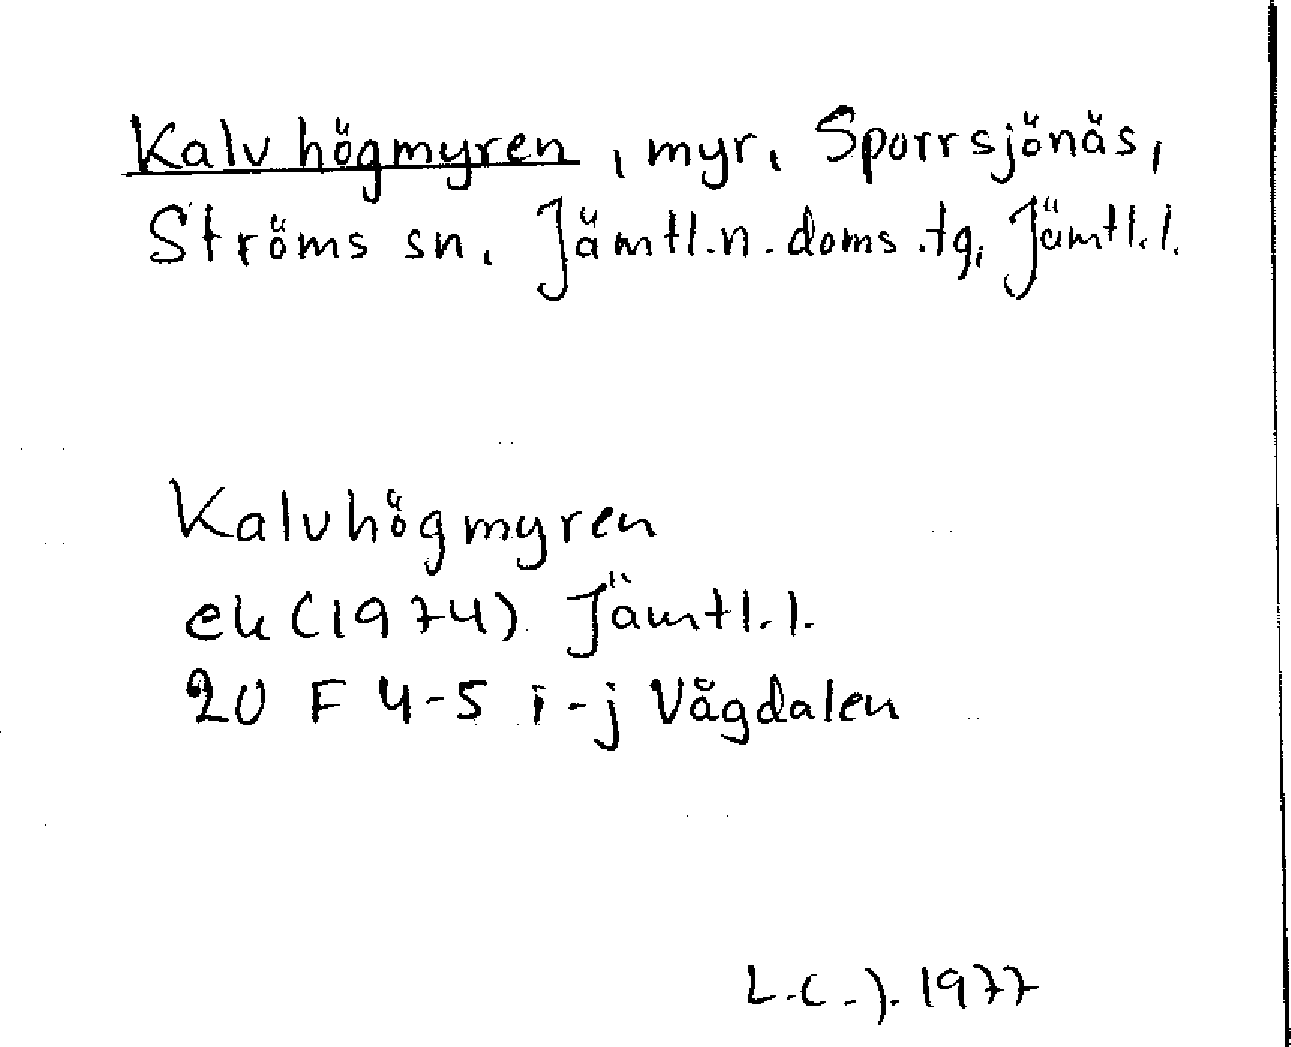 Kalvhögmyren, myr, Sporrsjönäs,
Ströms sn, Jämtl.n.doms.tg, Jämtl.l.
Kalvhögmyren
ek (1974) Jämtl.l.
20 F 4-5 i-j Vågdalen
L.C.J. 1977